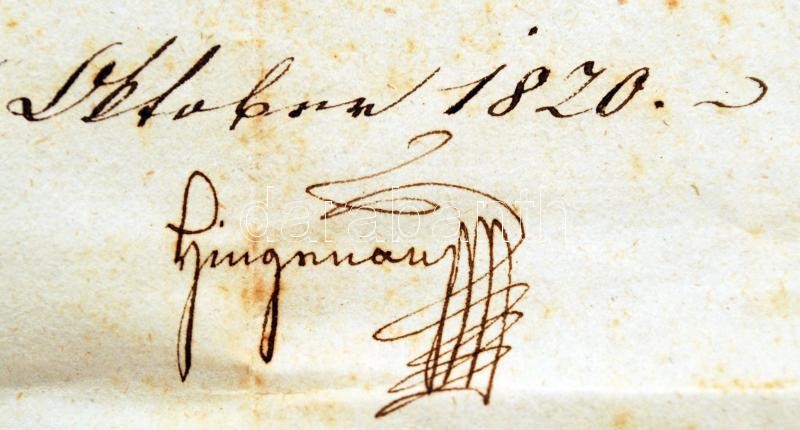 October 1820.
Hingenau
darabanth